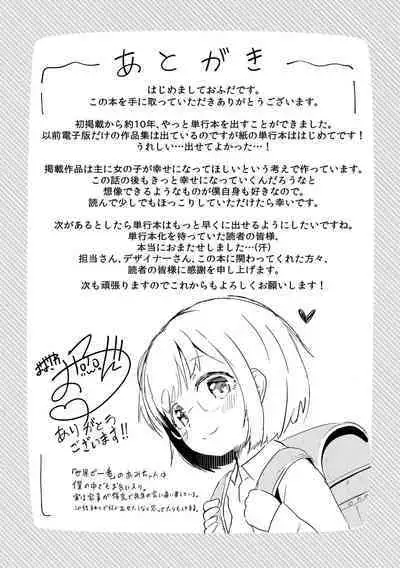 あとがき
はじめましておふだです。
この本を手に取っていただきありがとうございます。
初掲載から約10年、やっと単行本を出すことができました。
以前電子版だけの作品集は出ているのですが紙の単行本ははじめてです！
うれしい…出せてよかった…！
掲載作品は主に女の子が幸せになってほしいという考えで作っています。
この話の後もきっと幸せになっていくんだろうなと
想像できるようなものが僕自身も好きなので。
読んで少しでもほっこりしていただけたら幸いです。
次があるとしたら単行本はもっと早くに出せるようにしたいですね。
単行本化を待っていた読者の皆様、
本当におまたせしました…(汗)
担当さん、デザイナーさん、この本に関わってくれた方々、
読者の皆様に感謝を申し上げます。
次も頑張りますのでこれからもよろしくお願いします！
ありがとう
ございます!!
僕の中でもお気に入り。